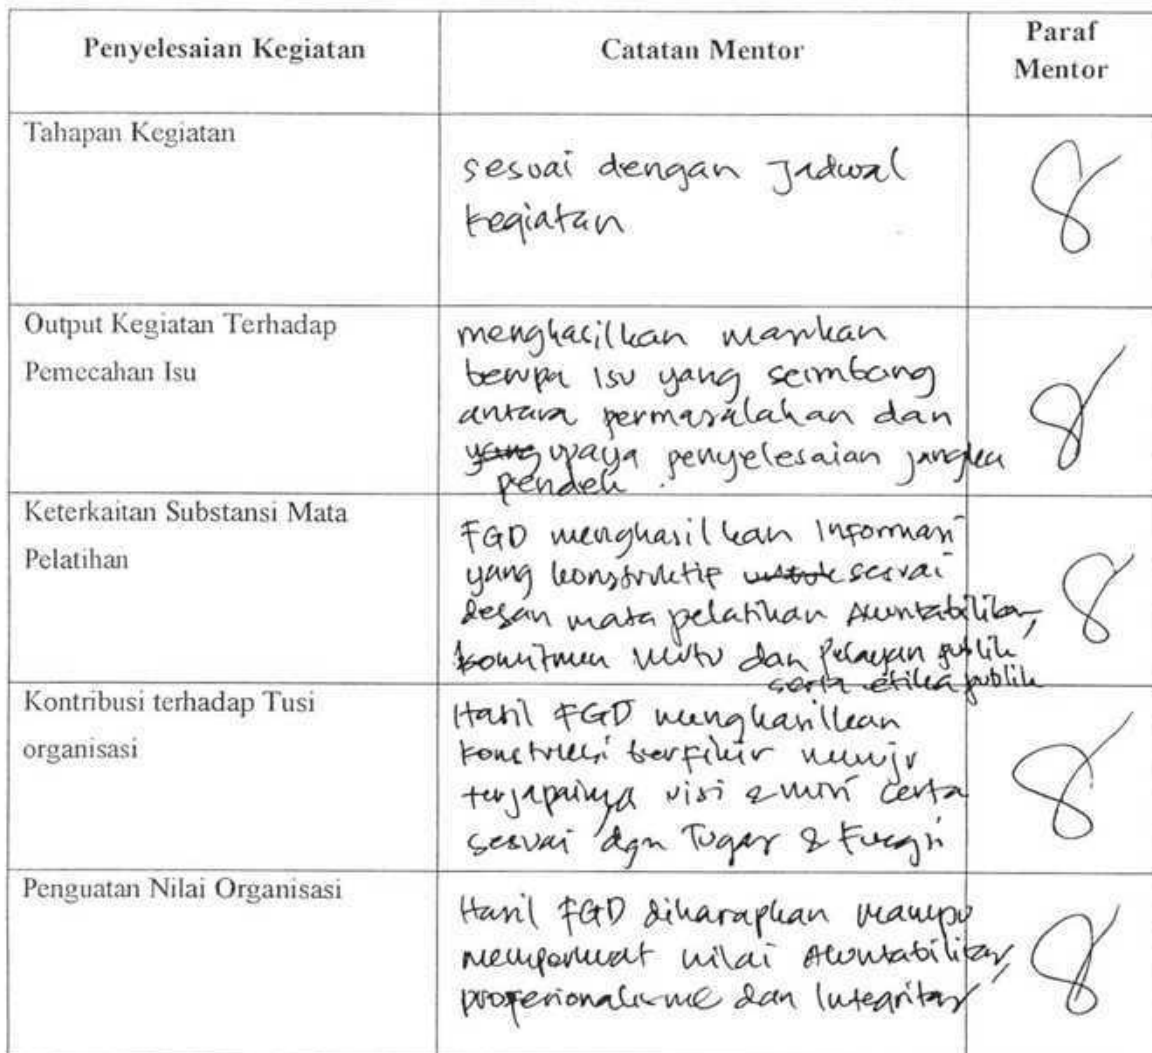 Penyelesaian Kegiatan
Catatan Mentor
Paraf
Mentor
Tahapan Kegiatan
sesuai dengan Jadwal
kegiatan
Output Kegiatan Terhadap
Pemecahan Isu
menghasilkan masukan
berupa Isu yang seimbang
antara permasalahan dan
yang upaya penyelesaian jangka
pendek.
Keterkaitan Substansi Mata
Pelatihan
FGD menghasilkan Informasi
yang konstruktif untuk sesuai
degan mata pelatihan Akuntabilitas,
komitmen mutu dan Pelayan publik
serta etika publik
Kontribusi terhadap Tusi
organisasi
Hasil FGD menghasilkan
konstruksi berfikir menuju
tercapainya visi & misi serta
sesuai dgn Tugas & Fungsi
Penguatan Nilai Organisasi
Hasil FGD diharapkan mampu
memperkuat nilai Akuntabilitas,
profesionalisme dan Integritas